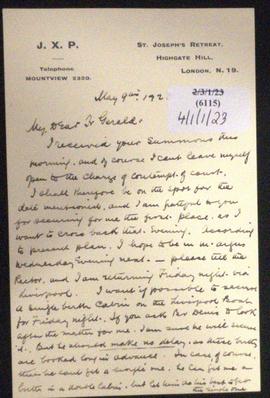 J. X. P.
ST. JOSEPH'S RETREAT.
HIGHGATE HILL,
LONDON, N. 19.
Telephone
MOUNTVIEW 2320.
May 9th, 192
2/3/1/23
(6115)
4/1/1/23
My Dear Fr Gerald:
I received your Summons this
morning, and of course I cant leave myself
open to the charge of contempt of court.
I shall therefore be on the spot for the
date mentioned, and I am grateful to you
for securing for me the first place, as I
want to cross back that evening. According
to present plan, I hope to be in Mt. Argus
Wednesday Evening next — please tell the
Rector, and I am returning Friday night via
Liverpool. I want if possible to secure
a single berth Cabin on the Liverpool Boat
for Friday night. If you ask Br Denis to look
after the matter for me, I am sure he will secure
it. But he should make no delay, as these berths
are booked long in advance. In case of course
that he cant get a single one, he can get me a
berth in a double Cabin, but let him do his best to get
the single one